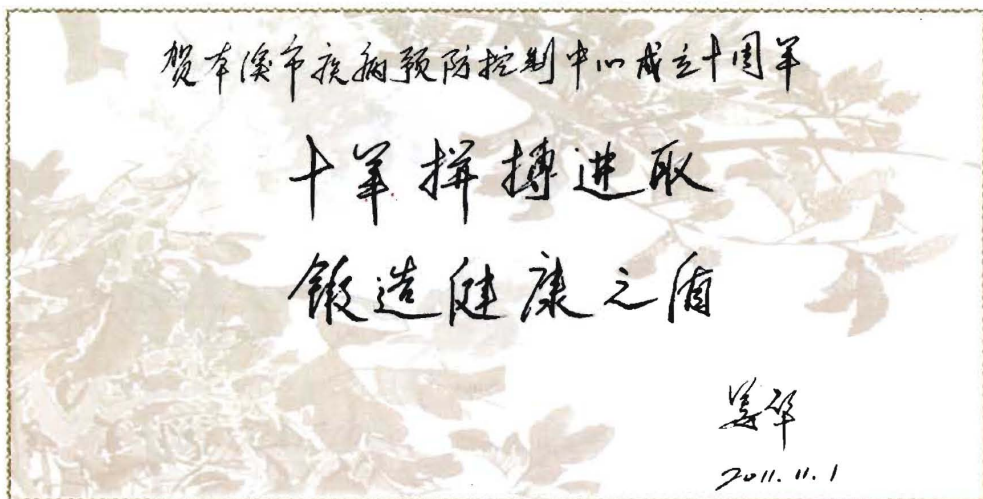 贺本溪市疾病预防控制中心成立十周年
十年拼搏进取
锻造健康之盾
姜华
2011.11.1